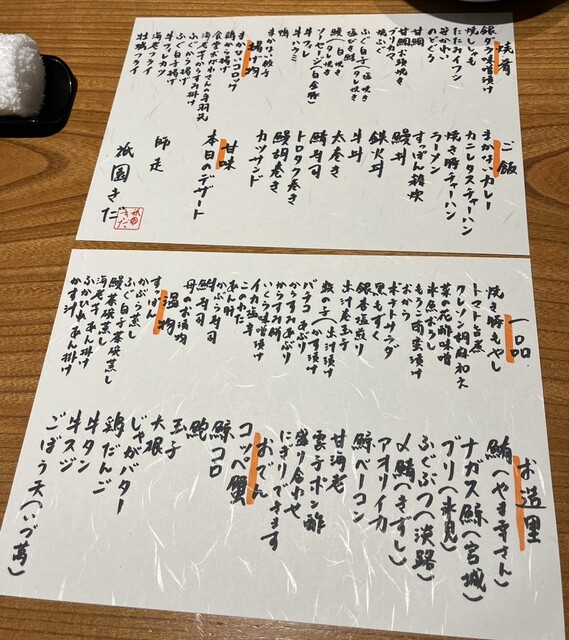 焼肴
銀ダラ味噌漬け
焼ししゃも
たたみイワシ
笹かれい
のどぐろ
甘鯛
甘鯛お頭焼き
ブリカマ
焼ふぐ
ふぐ白子(塩焼き タレ焼き)
塩びき鮭
鰻(白焼き タレ焼き)
ソーセージ(白金豚)
牛フィレ
牛ハラミ
鴨
まかない餃子
揚げ物
まかないコロッケ
鶏から揚げ
ふぐから揚げ
ふぐ白子揚げ
牛フィレカツ
海老フライ
牡蠣フライ
ご飯
まかないカレー
カニレタスチャーハン
焼き豚チャーハン
ラーメン
すっぽん雑炊
鰻丼
鉄火丼
牛丼
太巻き
鯖寿司
トロタク巻き
鰻胡巻き
カツサンド
甘味
本日のデザート
師走
祇園きだ
一品
焼き豚もやし
トマト旨煮
クレソン胡麻和え
菜の花酢味噌
氷魚ポン酢
もろこ南蛮漬け
おから
ポテトサラダ
黒もずく
銀杏塩煎り
出汁巻玉子
数の子(かす漬け 出汁漬け)
バチコあぶり
からすみあぶり
からすみ餅
いくら味噌漬け
イカ塩辛
このわた
あん肝
ふぐ寿司
鮨寿司
母のお漬物
温物
すっぽん
かぶら蒸し
ふぐ白子茶碗蒸し
鰻茶碗蒸し
海老芋あん掛け
ふかひれあん掛け
かす汁
お造里
鮪(やま幸さん)
ナガス鯨(宮城)
ブリ(氷見)
ふぐぶつ(淡路)
〆鯖(きずし)
アオリイカ
鯨ベーコン
甘海老
雲子ポン酢
盛り合わせ
にぎりできます
おでん
コッペ蟹
鯨コロ
鮑
玉子
大根
じゃがバター
鶏だんご
牛タン
牛スジ
ごぼう天(いづ萬)